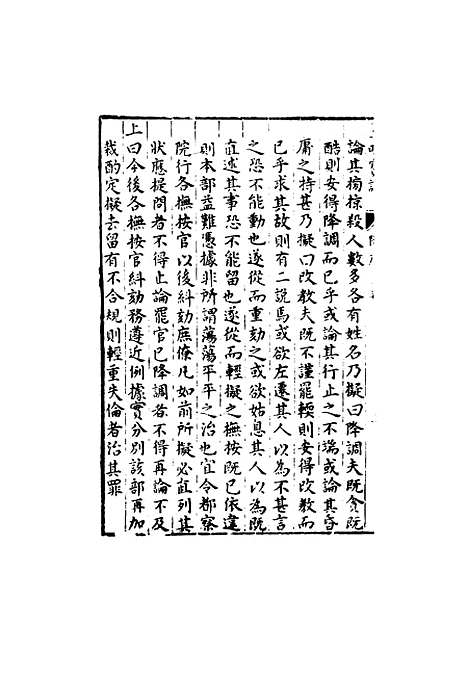 論其搒掠殺人數多各有姓名乃擬曰降調夫既貪既
酷則安得降調而已乎或論其行止之不端或論其昏
庸之特甚乃擬曰改教夫既不謹罷輭則安得改教而
已乎求其故則有二說焉或欲左遷其人以為不甚言
之恐不能動也遂從而重劾之或欲姑息其人以為既
直述其事恐不能留也遂從而輕擬之撫按既已依違
則本部益難憑據非所謂蕩蕩平平之治也宜令都察
院行各撫按官以後糾劾庶僚凡如前所擬必直列其
狀應提問者不得止論罷官已降調者不得再論不及
上曰今後各撫按官糾劾務遵近例據實分別該部再加
裁酌定擬去留有不合規則輕重失倫者治其罪